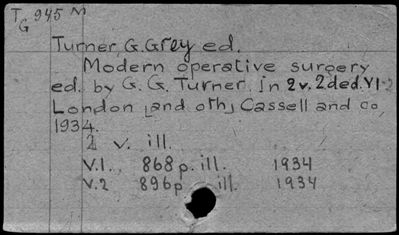 T 945 M
G
Turner, G. Grey ed.
Modern operative surgery
ed. by G. G. Turner. in 2 v. 2d ed. V1-2
London [and oth] Cassell and co
1934.
2 v. ill.
V.1. 868 p. ill. 1934
V.2 896 p ill. 1934